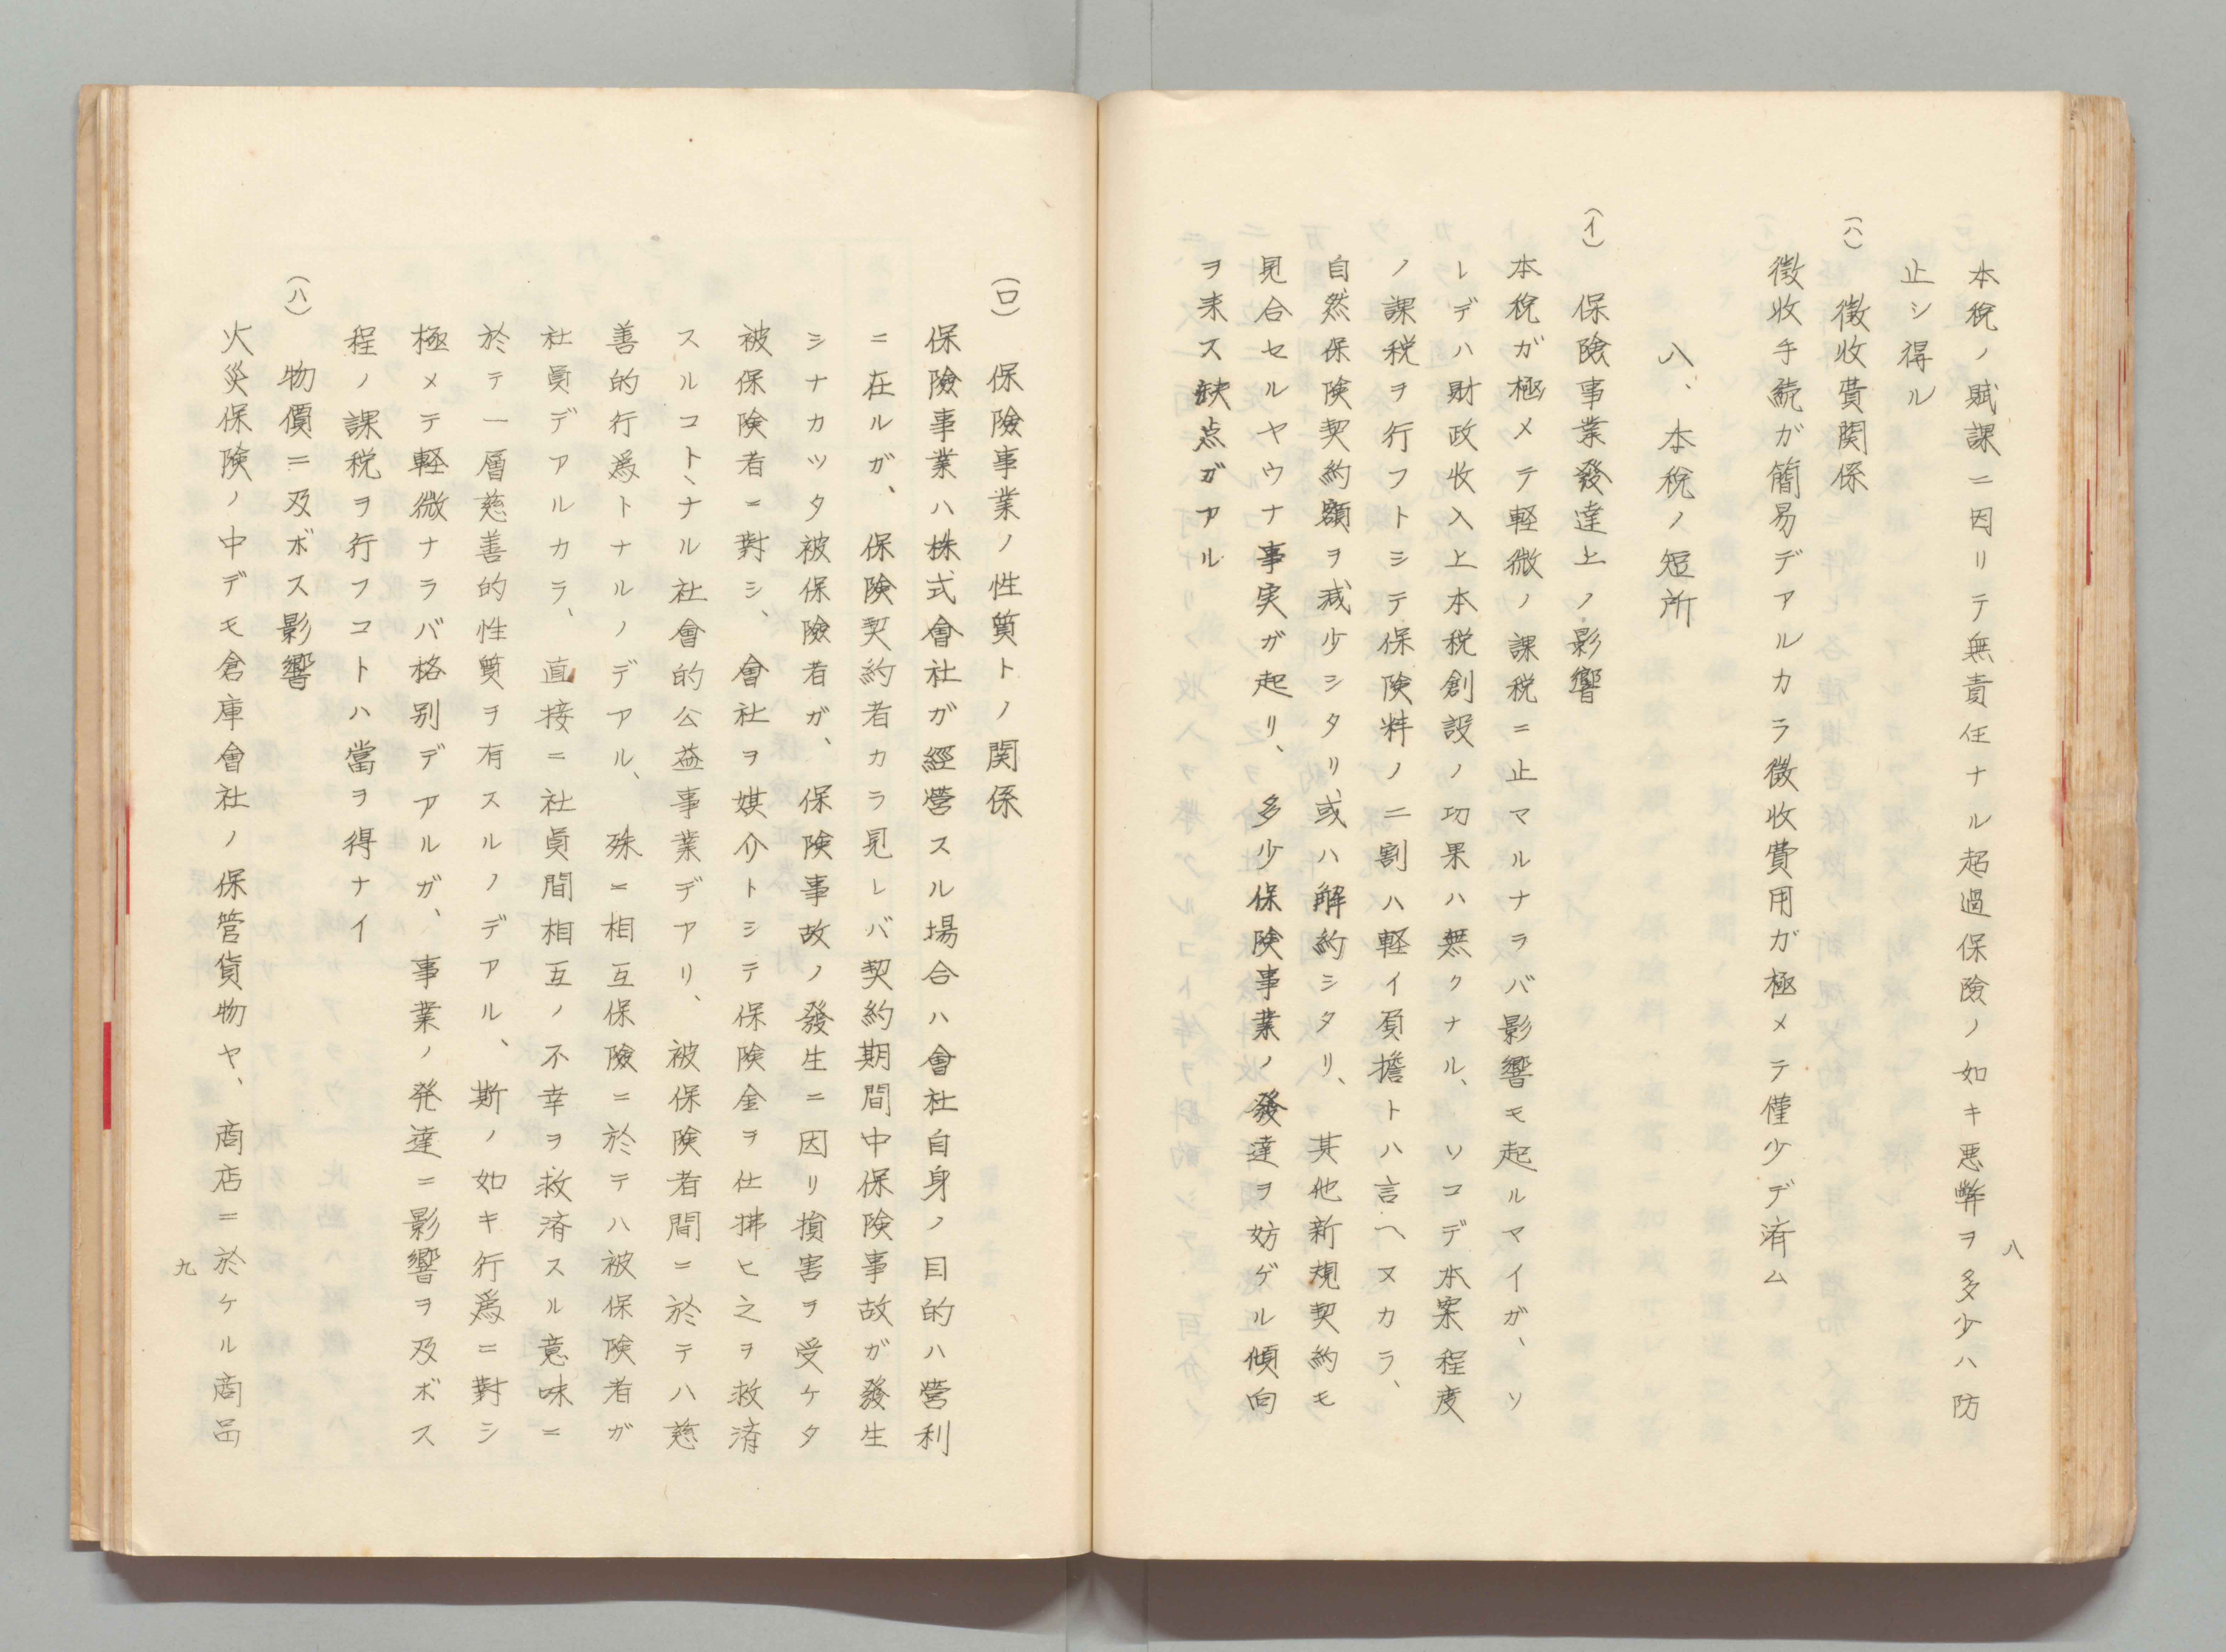 八
本税ノ賦課ニ因リテ無責任ナル超過保險ノ如キ悪弊ヲ多少ハ防
止シ得ル
(ハ) 徴收費関係
徴收手続が簡易デアルカラ徴收費用が極メテ僅少デ済ム
八、本税ノ短所
(イ) 保險事業發達上ノ影響
本税ガ極メテ軽微ノ課税ニ止マルナラバ影響モ起ルマイガ、ソ
レデハ財政收入上本税創設ノ功果ハ無クナル、ソコデ本案程度
ノ課税ヲ行フトシテ保険料ノ二割ハ軽イ負擔トハ言ヘヌカラ、
自然保険契約額ヲ減少シタリ、或ハ解約シタリ、其他新規契約モ
見合セルヤウナ事実ガ起リ、多少保険事業ノ發達ヲ妨ゲル傾向
ヲ来ス缺点ガアル
(ロ) 保險事業ノ性質トノ関係
保險事業ハ株式會社ガ經營スル場合ハ會社自身ノ目的ハ營利
ニ在ルガ、保険契約者カラ見レバ契約期間中保険事故ガ發生
シナカツタ被保險者ガ、保険事故ノ發生ニ因リ損害ヲ受ケタ
被保険者ニ對シ、會社ヲ媒介トシテ保険金ヲ仕拂ヒ之ヲ救済
スルコトヽナル社會的公益事業デアリ、被保険者間ニ於テハ慈
善的行爲トナルノデアル、殊ニ相互保險ニ於テハ被保険者ガ
社員デアルカラ、直接ニ社員間相互ノ不幸ヲ救済スル意味ニ
於テ一層慈善的性質ヲ有スルノデアル、斯ノ如キ行爲ニ對シ
極メテ軽微ナラバ格別デアルガ、事業ノ発達ニ影響ヲ及ボス
程ノ課税ヲ行フコトハ當ヲ得ナイ
(ハ) 物價ニ及ボス影響
火災保険ノ中デモ倉庫會社ノ保管貨物ヤ、商店ニ於ケル商品
九